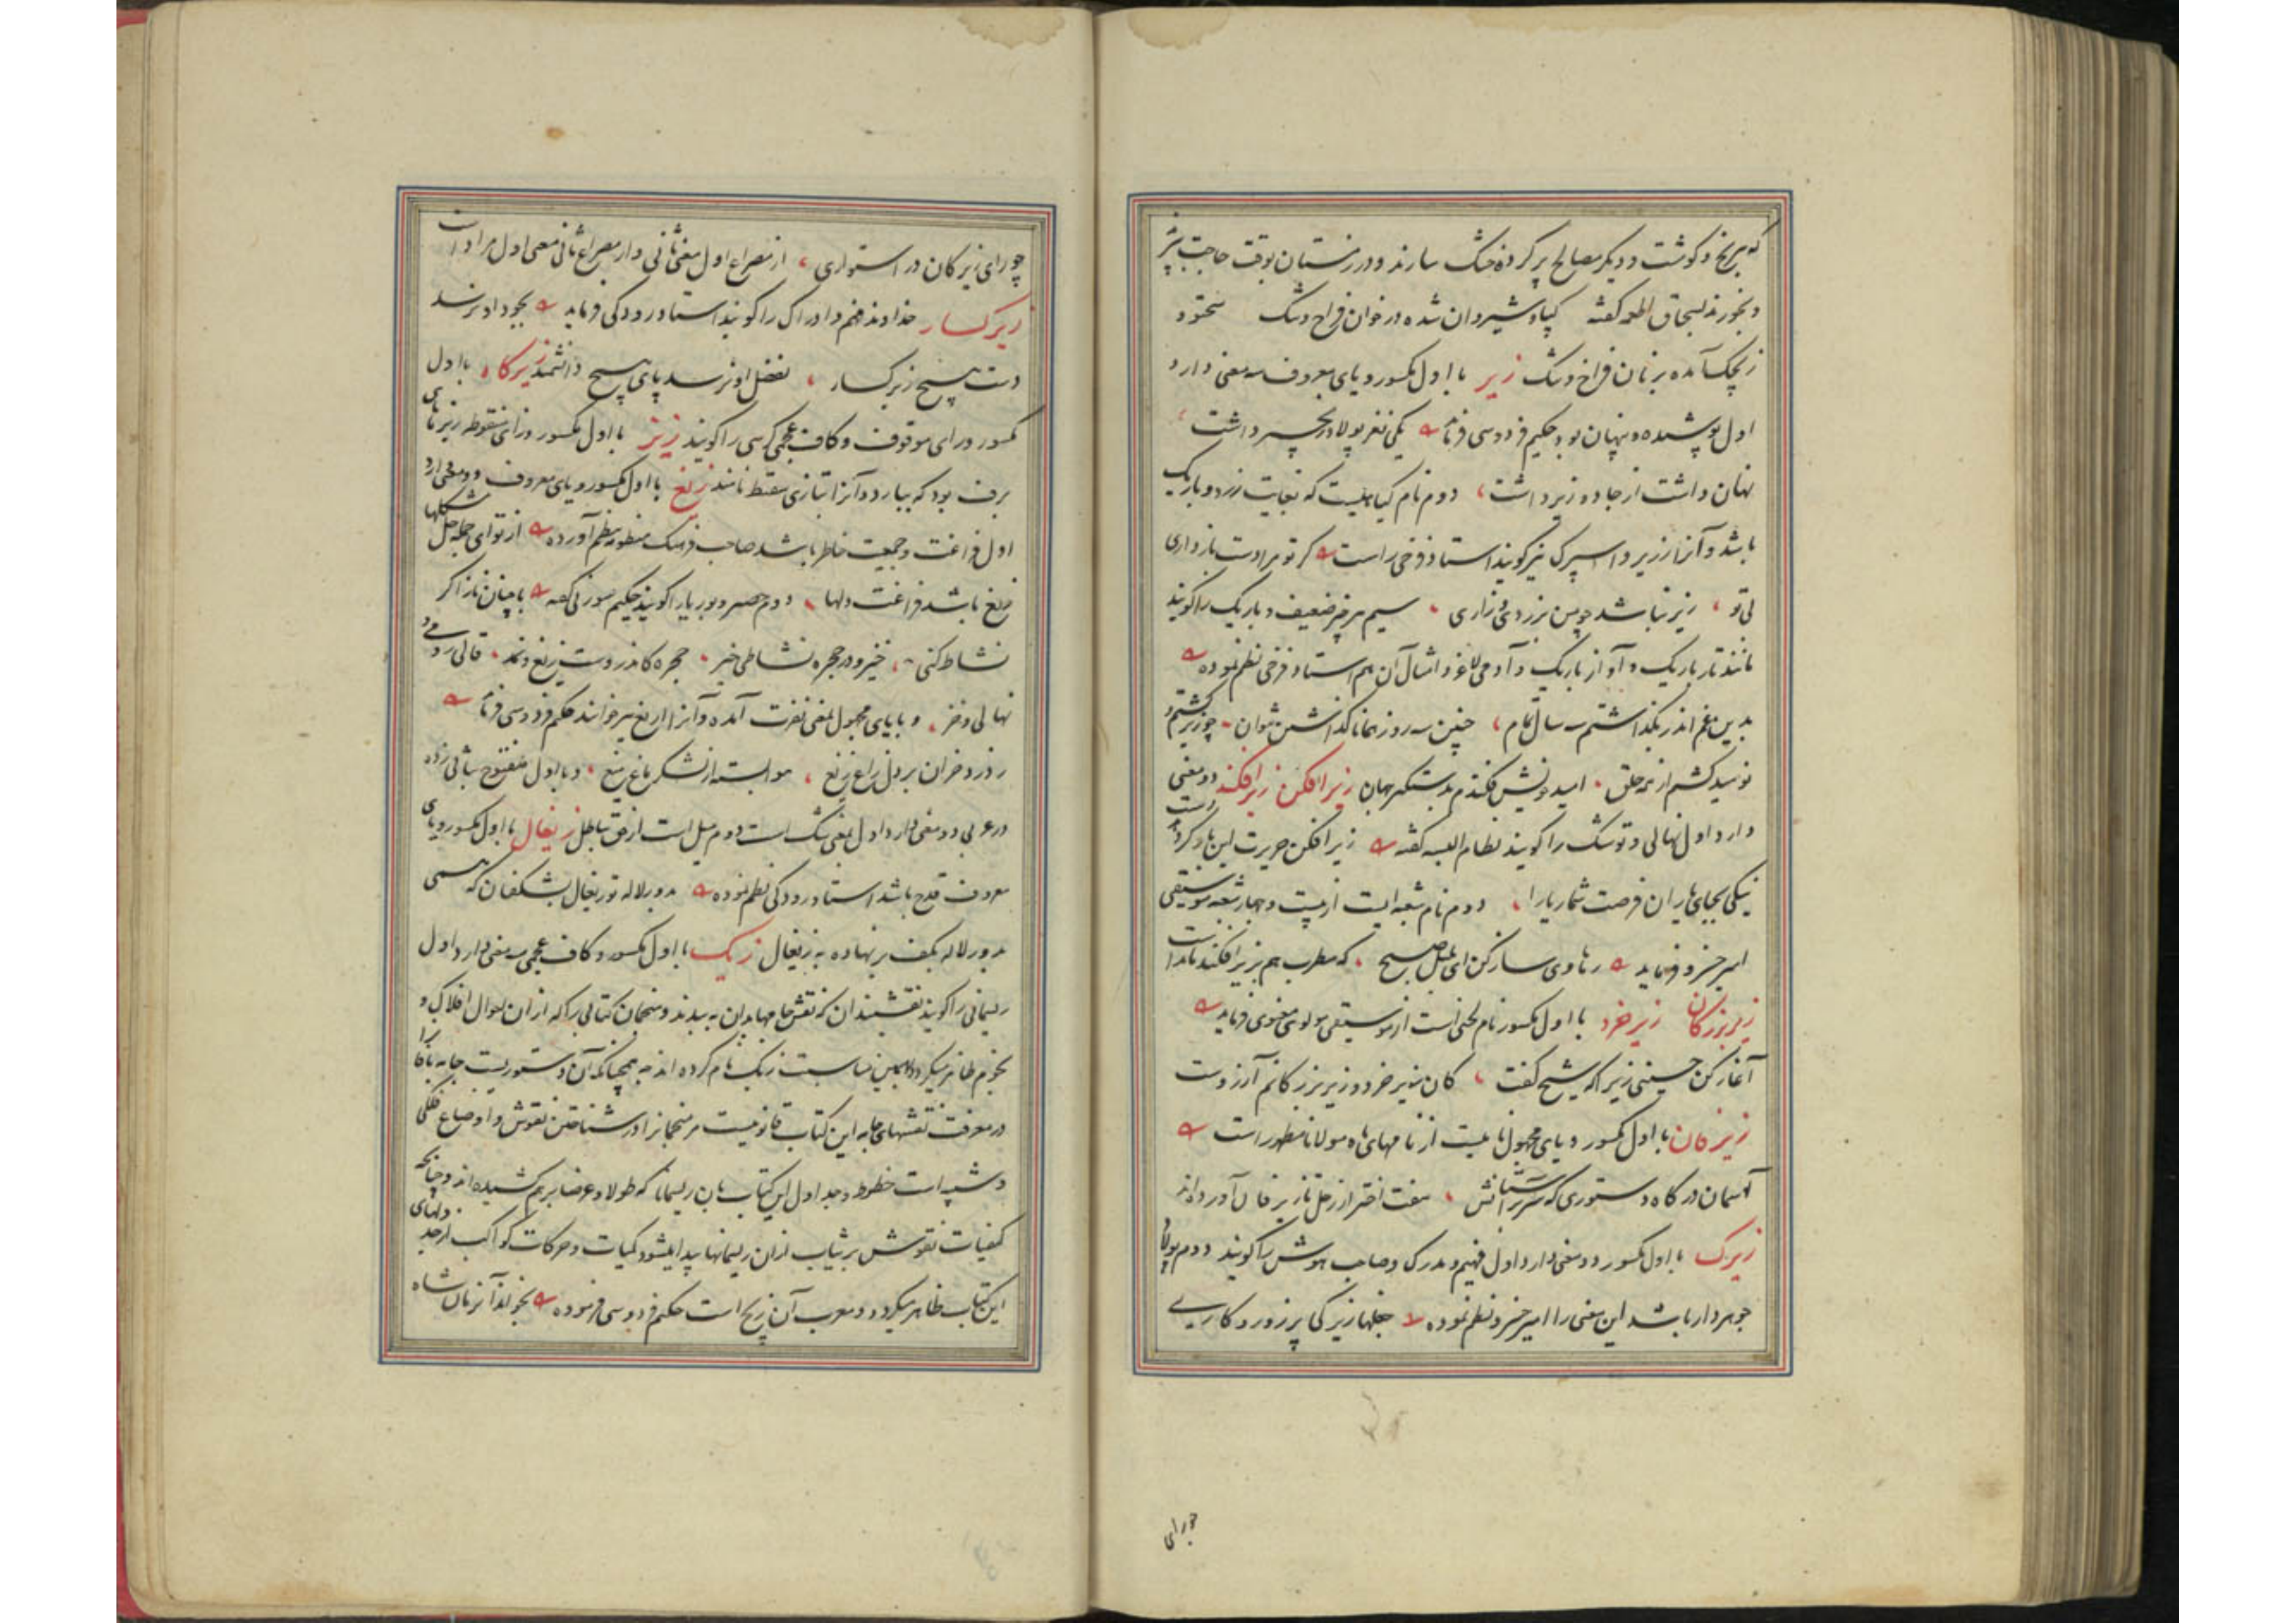 که برنج و گوشت و دیگر مصالح پر کرده خشک سازند و در زمستان بوقت حاجت پزند
و بخورند بسحاق اطعمه گفته کیپا و شیردان شده در خوان فراخ و تنگ
آمده بر نان فراخ و تنگ زیر با اول مکسور و یای معروف سه معنی دارد
اول پوشیده و پنهان بود حکیم فردوسی فرماید یکی نغز پولاد زنجیر داشت
نهان داشت از جادو و زیر داشت دوم نام گیاهیست که بغایت زرد و باریک
باشد و آنرا زریر و اسپرک نیز گویند استاد فرخی راست گر تو مرا دست باز داری
بی تو زیر نباشد چو من بزردی و زاری سیم هر چیز ضعیف و باریک را گویند
مانند تار باریک و آواز باریک و آدمی لاغر و امثال آن هم استاد فرخی نظم نموده
بدین غم اندر بگذاشتم سه سال تمام چنین سه روز همانا گذاشتن نتوان چو زیر گشتم و
نومید گشتم از همه خلق امید خویش فکندم بدستگیر جهان زیر افکن زیر افکند دو معنی
دارد اول نهالی و توشک را گویند نظام البسه گفته زیر افکن حریرت
نیکی بجای یاران فرصت شمار یارا دوم نام شعبه ایست از بیست و چهار شعبه موسیقی
امیر خسرو فرماید رهاوی ساز کن ای بلبل صبح که مطرب هم بزیر افکند ما را
زیر بزرگان زیر خرد با اول مکسور نام لحنی است از موسیقی مولوی معنوی فرماید
آغاز کن حسینی زیرا که شیخ گفت کان زیر خرد و زیر بزرگانم آرزوست
زیر فان با اول مکسور و یای مجهول نامیست از نامهای ماه مولانا مظهر راست
آسمان درگاه دستوری که هفت اختر از زحل تا زیر فان آورده اند
زیرک با اول مکسور دو معنی دارد اول فهیم و مدرک و صاحب هوش را گویند دوم پولاد
جوهردار باشد این معنی را امیر خسرو نظم نموده زیرکی پر زور و کاری
چو رای
چو رای زیرکان در استواری از مصراع اول معنی ثانی و از مصراع ثانی معنی اول مراد است
زیرکسار خداوند فهم و ادراک را گویند استاد رودکی فرماید بجود او نرسد
دست هیچ زیرکسار بفضل او نرسد پای هیچ دانشمند زیرگاه با اول
مکسور و رای موقوف و کاف عجمی کرسی را گویند زیز با اول مکسور و زای منقوطه ریزهای
برف بود که ببارد و آنرا بتازی سقیط نامند زیغ با اول مکسور و یای معروف دو معنی دارد
اول فراغت و جمعیت خاطر باشد صاحب فرهنگ منظومه بنظم آورده از تو ای جمله حل مشکلها
زیغ باشد فراغت دلها دوم حصیر و بوریا را گویند حکیم سوزنی گفته با چنان ناز اگر
نشاط کنی خیز و در حجره نشاطی خیز حجره کاندروست زیغ و نمد قالی رومی و
نهالی و خز و بیای مجهول بمعنی نفرت آمده و آنرا آریغ نیز خوانند حکیم فردوسی فرماید
زیغ و با اول مفتوح بثانی زده
در عربی دو معنی دارد اول بمعنی شک است دوم میل است از حق بباطل زیغال با اول مکسور و یای
معروف قدح باشد استاد رودکی نظم نموده
بکف بر نهاده به زیغال زیگ با اول مکسور و کاف عجمی سه معنی دارد اول
ریسمانی را گویند نقشبندان که نقش جامها بدان به بندند و منجمان کتابی را که از آن احوال افلاک و
نجوم ظاهر میگردد بهمین مناسبت زیگ نام کرده اند چه همچنانکه آن دستوریست جامه بافان را
در معرفت نقشهای جامه این کتاب قانونیست مر منجمانرا در شناختن نقوش و اوضاع فلکی
و شبیه است خطوط و جداول این کتاب بآن ریسمانها که طولا و عرضا بر هم کشیده اند و چنانکه
کیفیات نقوش بر ثیاب از آن ریسمانها پیدا میشود کمیات و حرکات کواکب از جدولهای
این کتاب ظاهر میگردد و معرب آن زیج است حکیم فردوسی فرموده بخواند آنزمان شاه